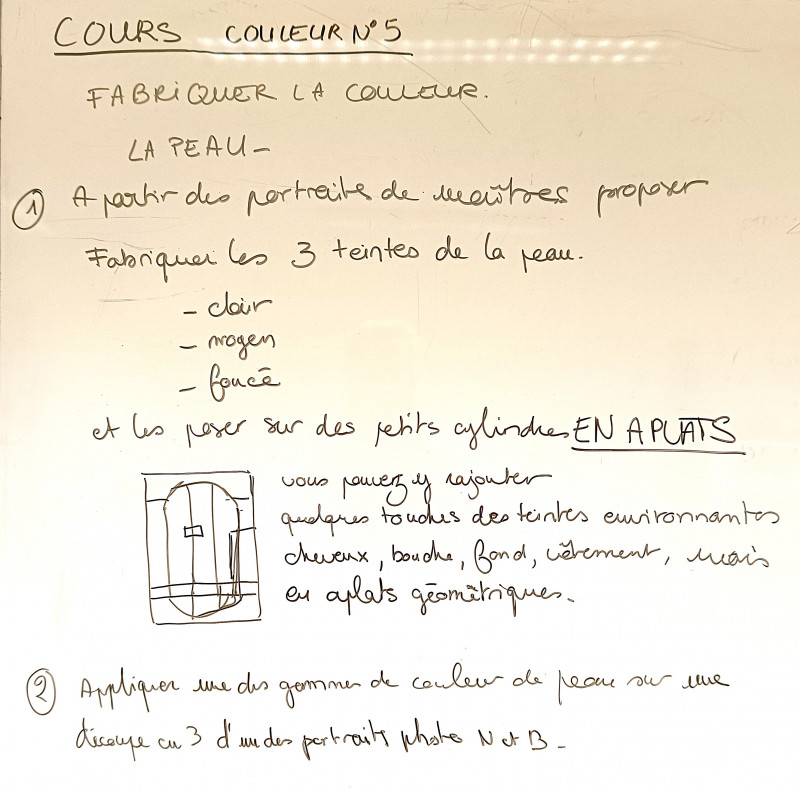 COURS COULEUR N°5
FABRIQUER LA COULEUR.
LA PEAU -
① A partir des portraits de maîtres proposer
Fabriquer les 3 teintes de la peau.
- clair
- moyen
- foncé
et les poser sur des petits cylindres EN APLATS
vous pouvez y rajouter
quelques touches des teintes environnantes
cheveux, bouche, fond, vêtement, mais
en aplats géométriques.
② Appliquer une des gammes de couleur de peau sur une
découpe en 3 d'un des portraits photo N et B -